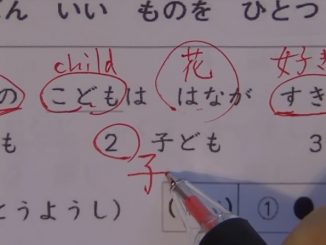 ん いい ものを ひとつ
child 花 好き
の こどもは はなが すき
も 2 子ども 3
子
とうようし) ( ) ①